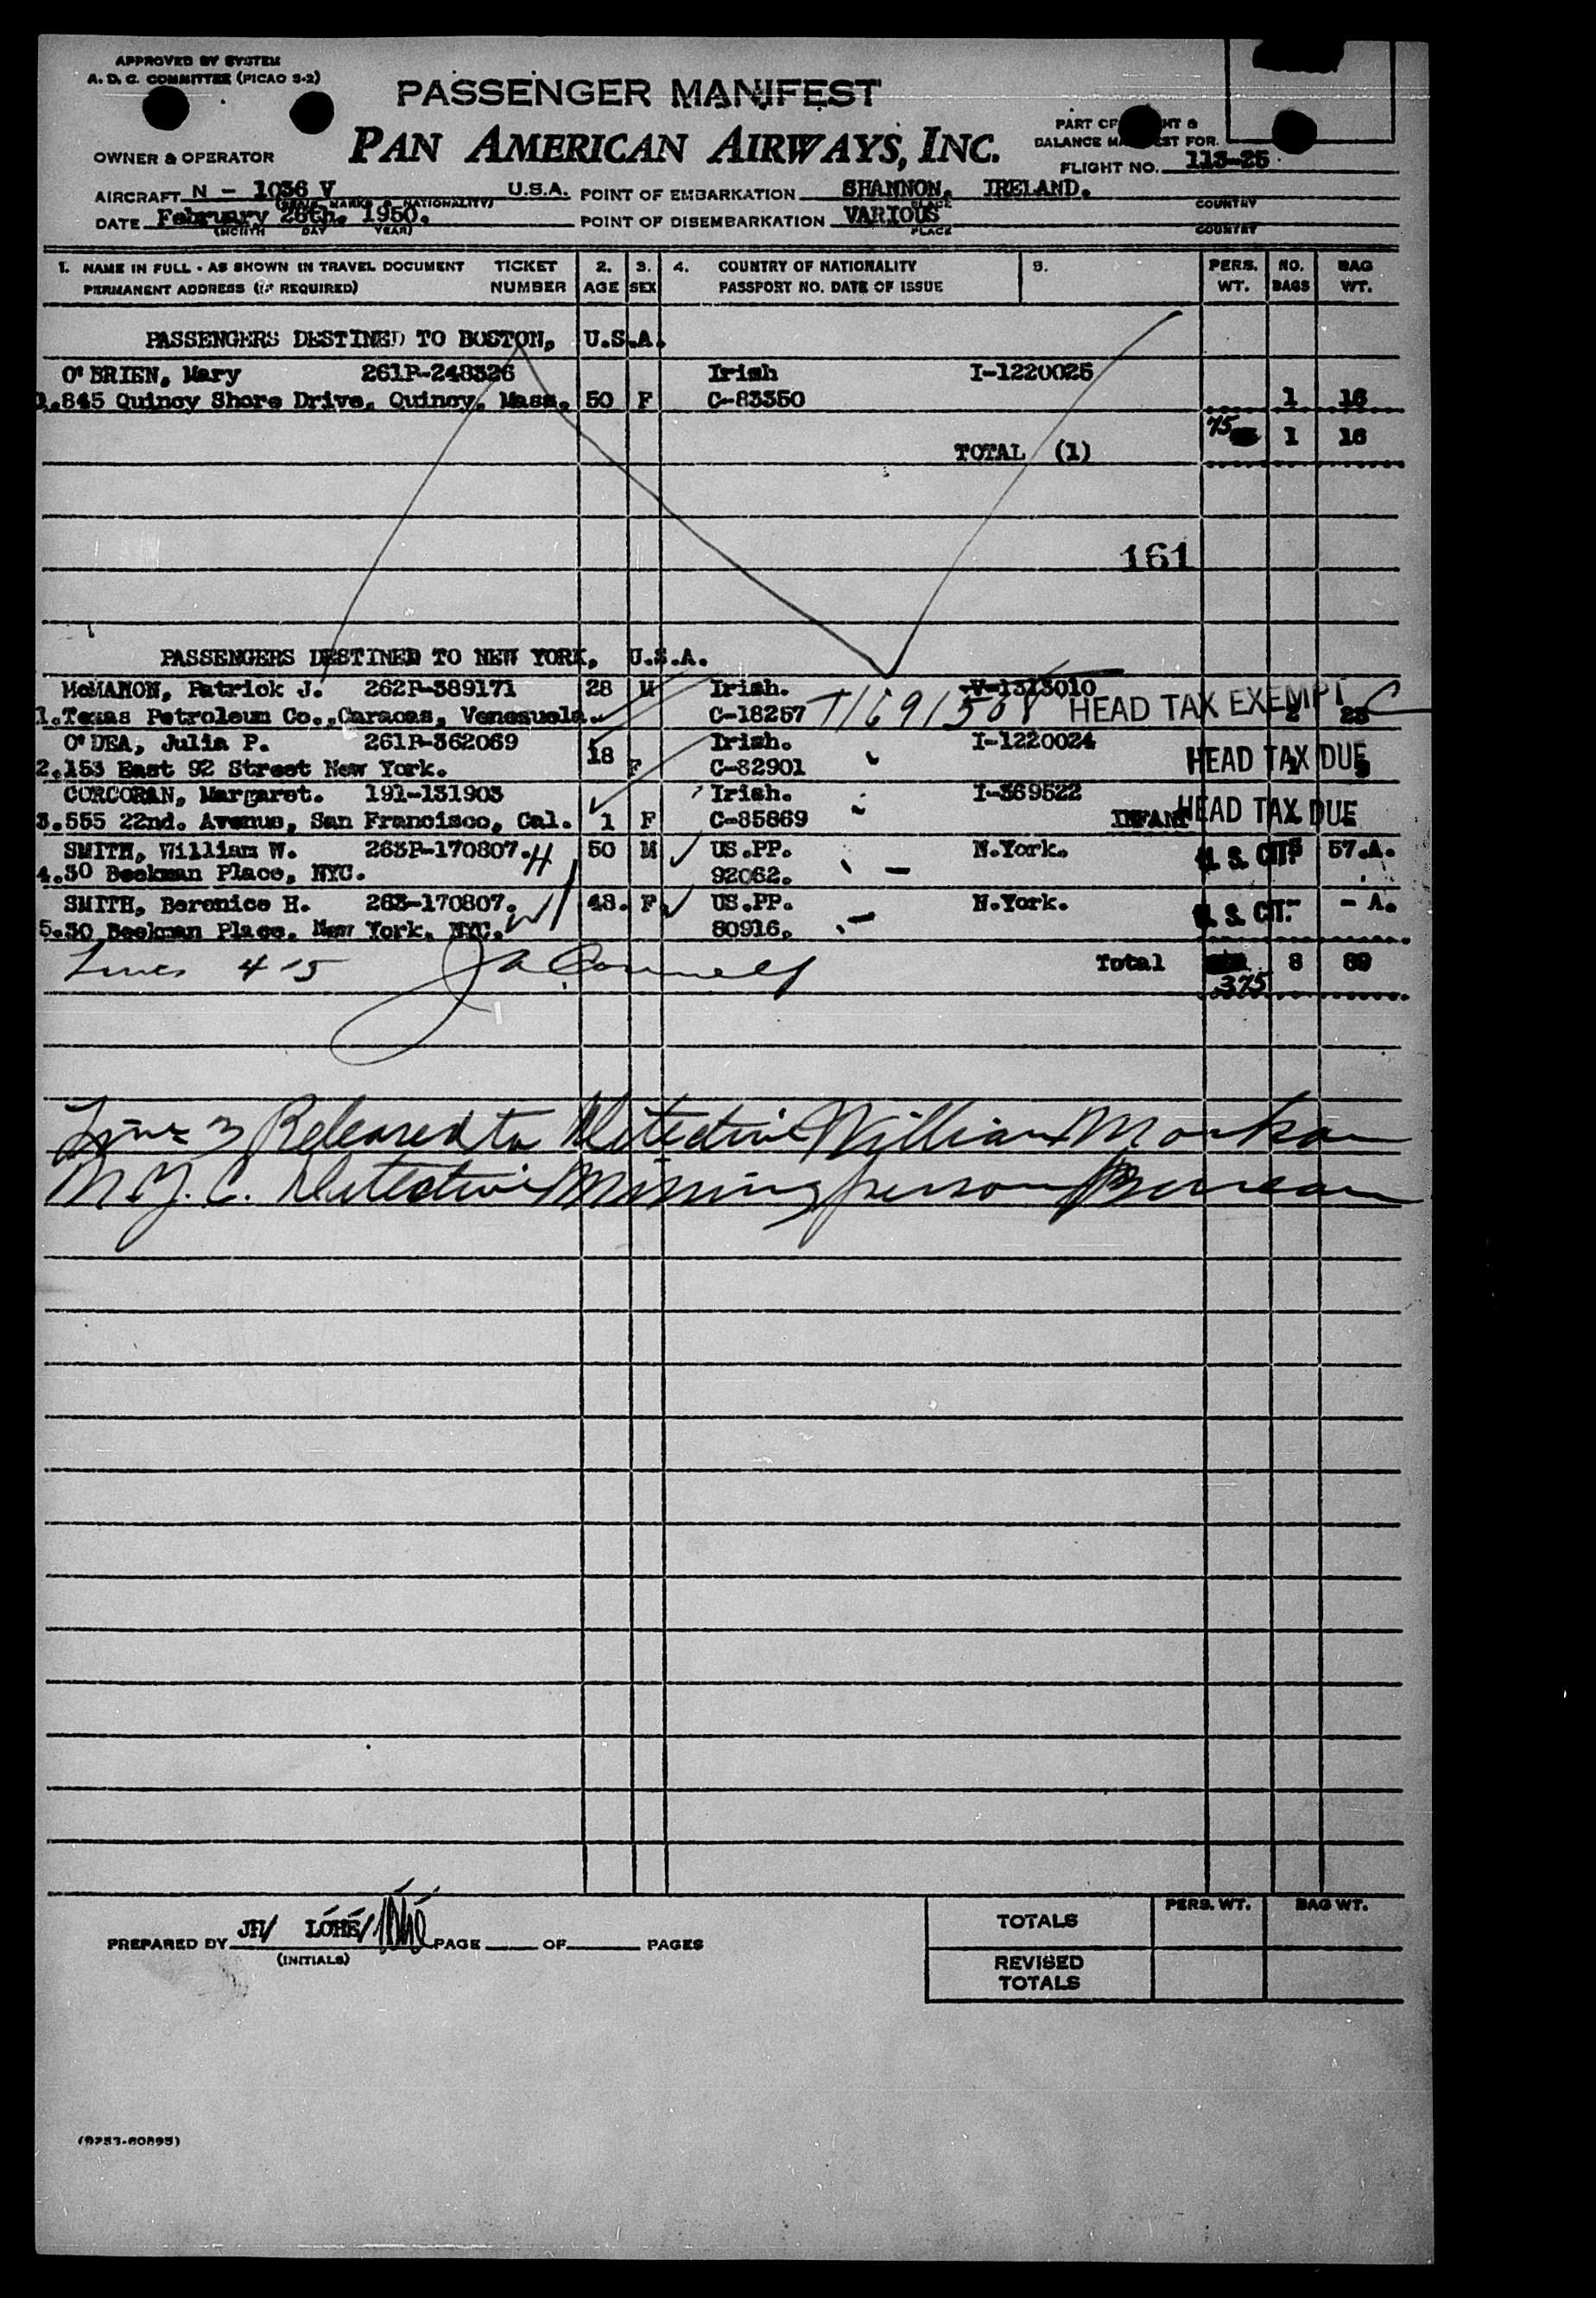 APPROVED BY SYSTEM
A. D. C. COMMITTEE (PICAO 3-2)
PASSENGER MANIFEST
PAN AMERICAN AIRWAYS, INC.
OWNER & OPERATOR
PART OF
BALANCE
FOR
FLIGHT NO. 113-25
AIRCRAFT N - 1036 V U.S.A. POINT OF EMBARKATION SHANNON, IRELAND.
NATIONALITY) PLACE COUNTRY
DATE February 1950. POINT OF DISEMBARKATION VARIOUS
(MONTH DAY YEAR) PLACE COUNTRY
1. NAME IN FULL - AS SHOWN IN TRAVEL DOCUMENT TICKET 2. 3. 4. COUNTRY OF NATIONALITY 5. PERS. NO. BAG
PERMANENT ADDRESS (IF REQUIRED) NUMBER AGE SEX PASSPORT NO. DATE OF ISSUE WT. BAGS WT.
PASSENGERS DESTINED TO BOSTON, U.S.A.
O'BRIEN, Mary 261P-248326 Irish I-1220025
1.845 Quincy Shore Drive, Quincy, Mass. 50 F C-83350 1 16
75 1 16
TOTAL (1)
161
PASSENGERS DESTINED TO NEW YORK, U.S.A.
McMAHON, Patrick J. 262P-389171 28 M Irish. V-1313010
1.Texas Petroleum Co.,Caracas, Venezuela. C-18257 HEAD TAX EXEMPT 2 23
O'DEA, Julia P. 261P-362069 18 F Irish. I-1220024
2.153 East 92 Street New York. C-82901 HEAD TAX DUE
CORCORAN, Margaret. 191-131903 Irish. I-369522
3.555 22nd. Avenue, San Francisco, Cal. 1 F C-85869 INFANT HEAD TAX DUE
SMITH, William W. 263P-170807. H 50 M US.PP. N.York. U. S. CIT. 57.A.
4.30 Beekman Place, NYC. 92062.
SMITH, Berenice H. 263-170807. 48. F. US.PP. N.York. U. S. CIT. - A.
5.30 Beekman Place, New York, NYC. 80916.
Lines 4-5 Total 8 89
375
Line 3 Released to Detective William
N.Y.C. Detective Missing person Bureau
PREPARED BY JH/ PAGE OF PAGES
(INITIALS)
TOTALS PERS. WT. BAG WT.
REVISED
TOTALS